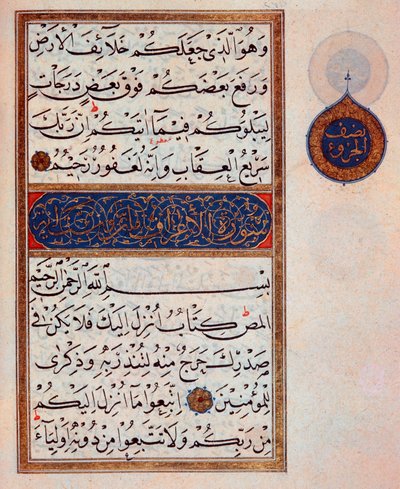 وَهُوَ الَّذِي جَعَلَكُمْ خَلَائِفَ الْأَرْضِ
وَرَفَعَ بَعْضَكُمْ فَوْقَ بَعْضٍ دَرَجَاتٍ
لِيَبْلُوَكُمْ فِيمَا آتَيكُمْ إِنَّ رَبَّكَ
سَرِيعُ الْعِقَابِ وَإِنَّهُ لَغَفُورٌ رَحِيمٌ
سورة الأعراف مائتان وست آيات
بِسْمِ اللَّهِ الرَّحْمَنِ الرَّحِيمِ
المص كِتَابٌ أُنْزِلَ إِلَيْكَ فَلَا يَكُنْ فِي
صَدْرِكَ حَرَجٌ مِنْهُ لِتُنْذِرَ بِهِ وَذِكْرَى
لِلْمُؤْمِنِينَ اتَّبِعُوا مَا أُنْزِلَ إِلَيْكُمْ
مِنْ رَبِّكُمْ وَلَا تَتَّبِعُوا مِنْ دُونِهِ أَوْلِيَاءَ
نصف
الجزؤ